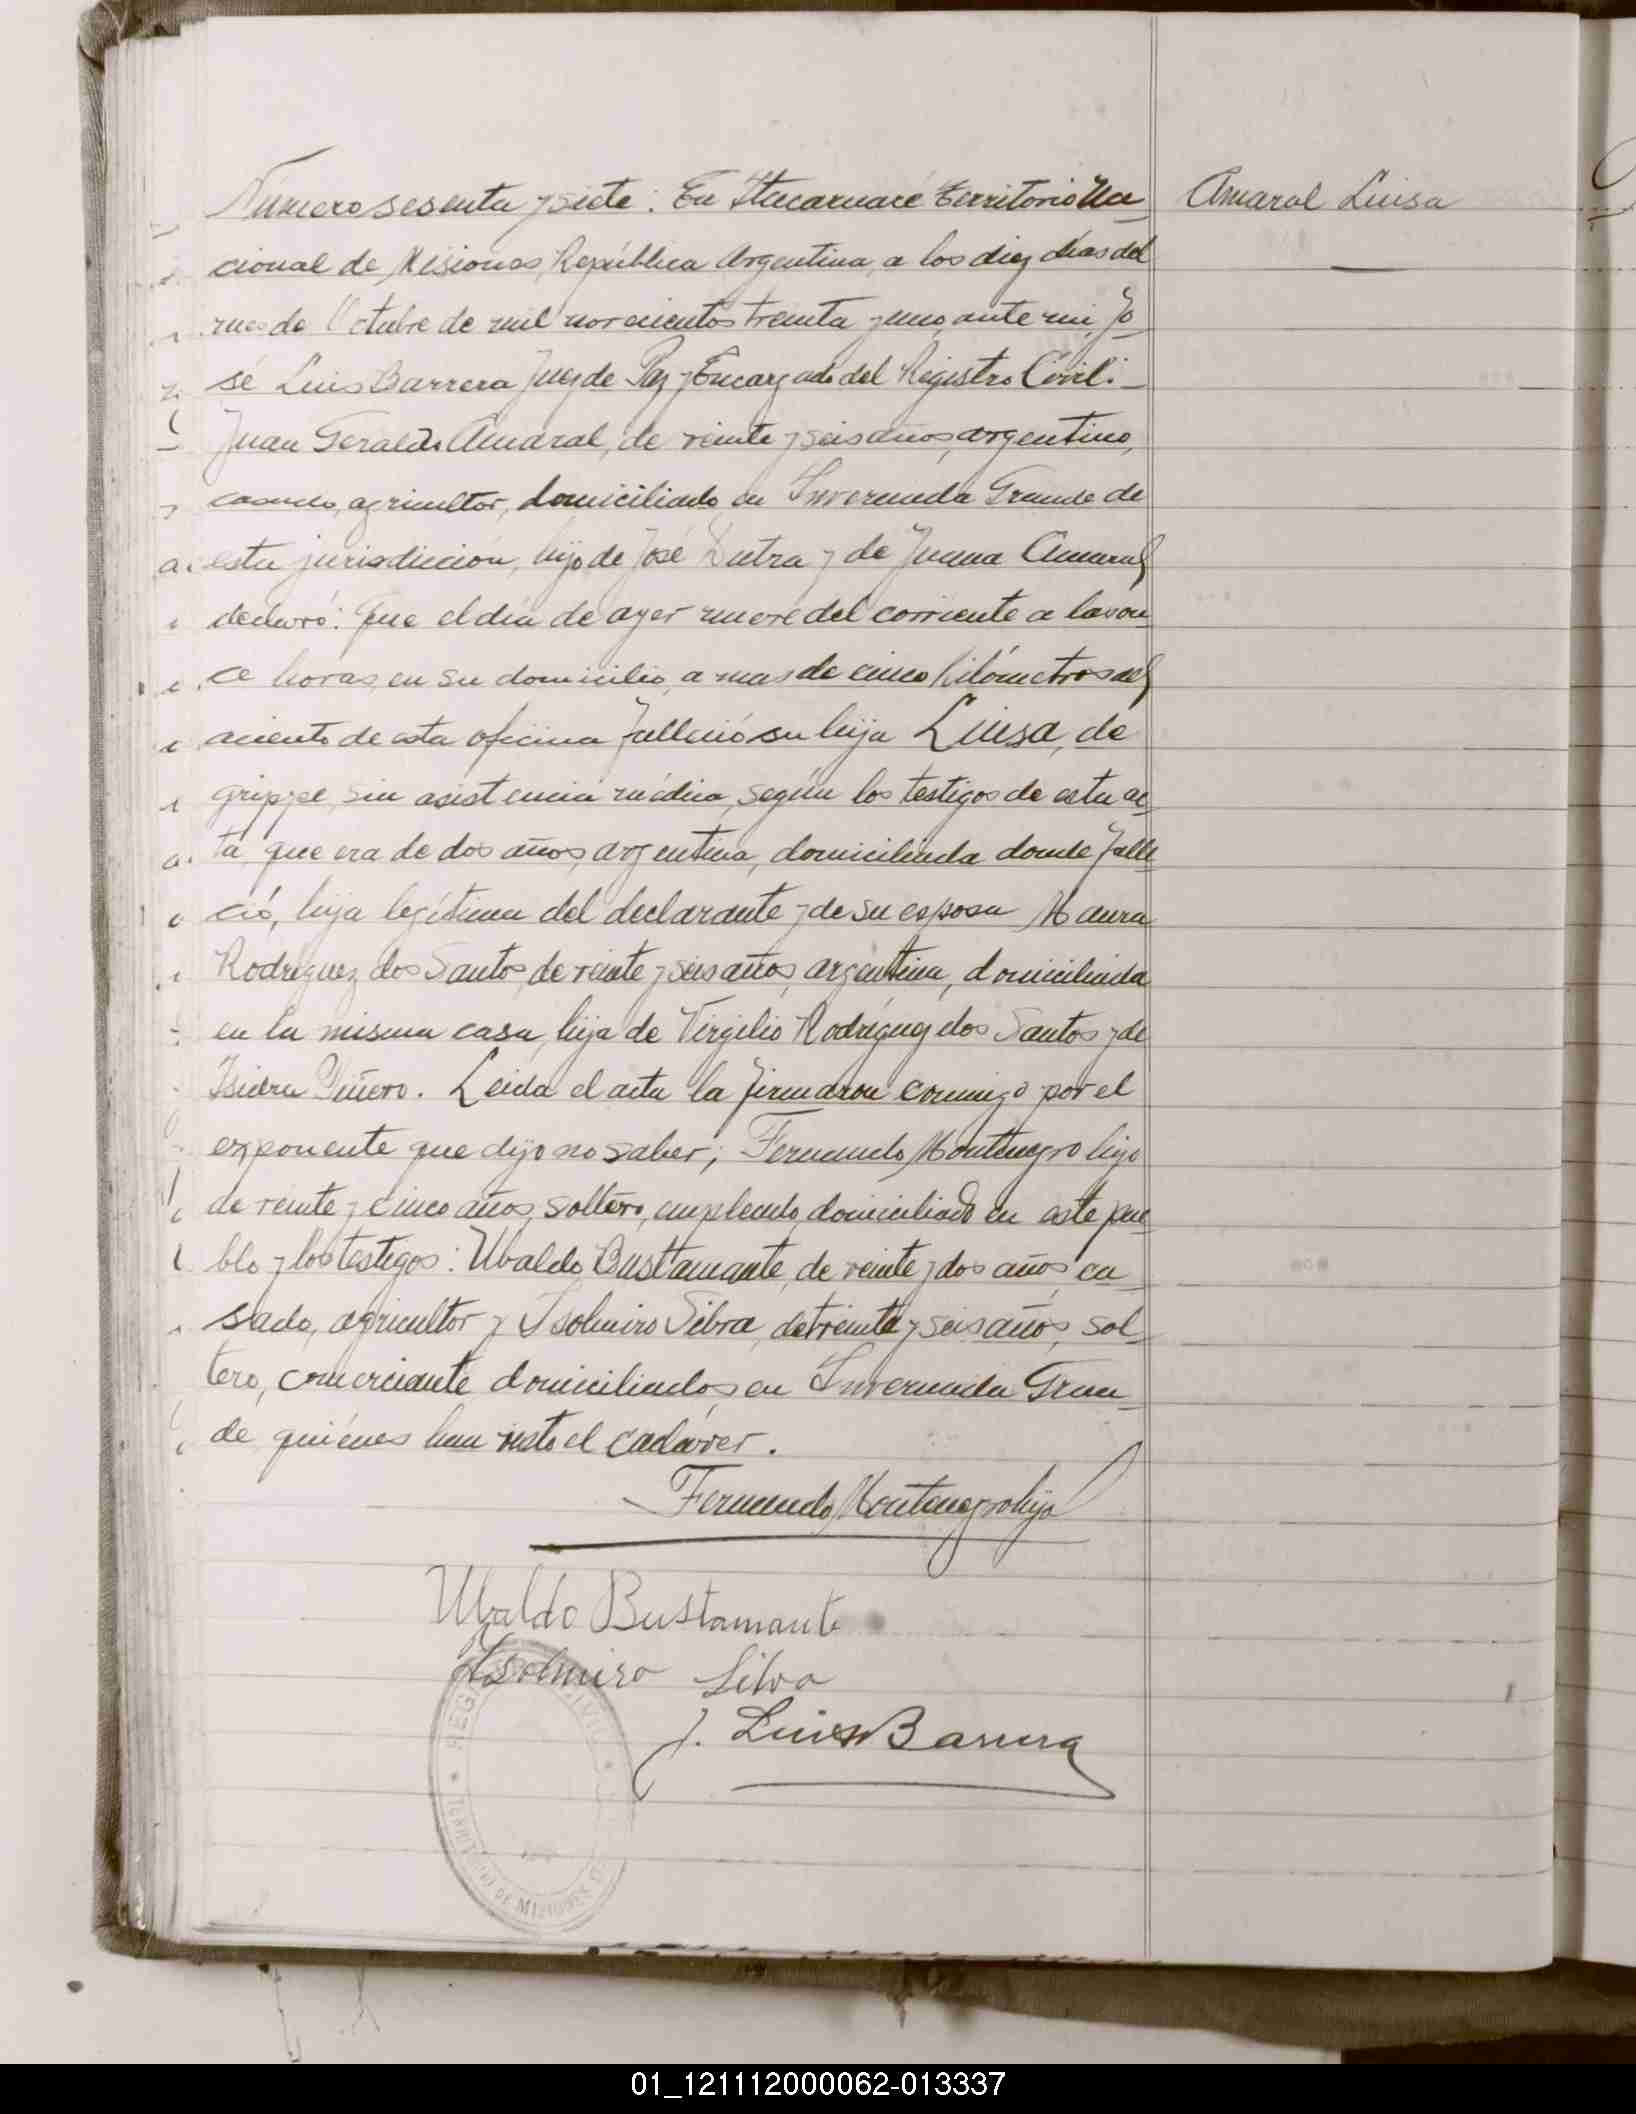 Número sesenta y siete: En Itacaruaré Territorio Na
cional de Misiones, República Argentina, a los diez días del
mes de Octubre de mil novecientos treinta y uno, ante mí, Jo
sé Luis Barrera Juez de Paz y Encargado del Registro Civil:
Juan Geraldo Amaral, de veinte y seis años, argentino,
casado, agricultor, domiciliado en Invernada Grande de
esta jurisdicción, hijo de José Dutra y de Juana Amaral,
declaró: Que el día de ayer nueve del corriente a las on
ce horas, en su domicilio, a mas de cinco kilómetros del
asiento de esta oficina falleció su hija Luisa, de
grippe, sin asistencia médica, según los testigos de esta ac-
ta, que era de dos años, argentina, domiciliada donde falle
ció, hija legítima del declarante y de su esposa Maura
Rodríguez dos Santos, de veinte y seis años, argentina, domiciliada
en la misma casa, hija de Virgilio Rodríguez dos Santos y de
Isidra Piñero. Leída el acta la firmaron conmigo por el
exponente que dijo no saber, Fernando Montenegro hijo
de veinte y cinco años, soltero, empleado, domiciliado en este pue
blo y los testigos: Ubaldo Bustamante, de veinte y dos años, ca
sado, agricultor y Isolmiro Silva, de treinta y seis años, sol
tero, comerciante, domiciliados en Invernada Gran
de quiénes han visto el cadáver.
Fernando Montenegro hijo
Ubaldo Bustamante
Isolmiro Silva
J. Luis Barrera
Amaral Luisa
TERRITORIO DE MISIONES
01_121112000062-013337